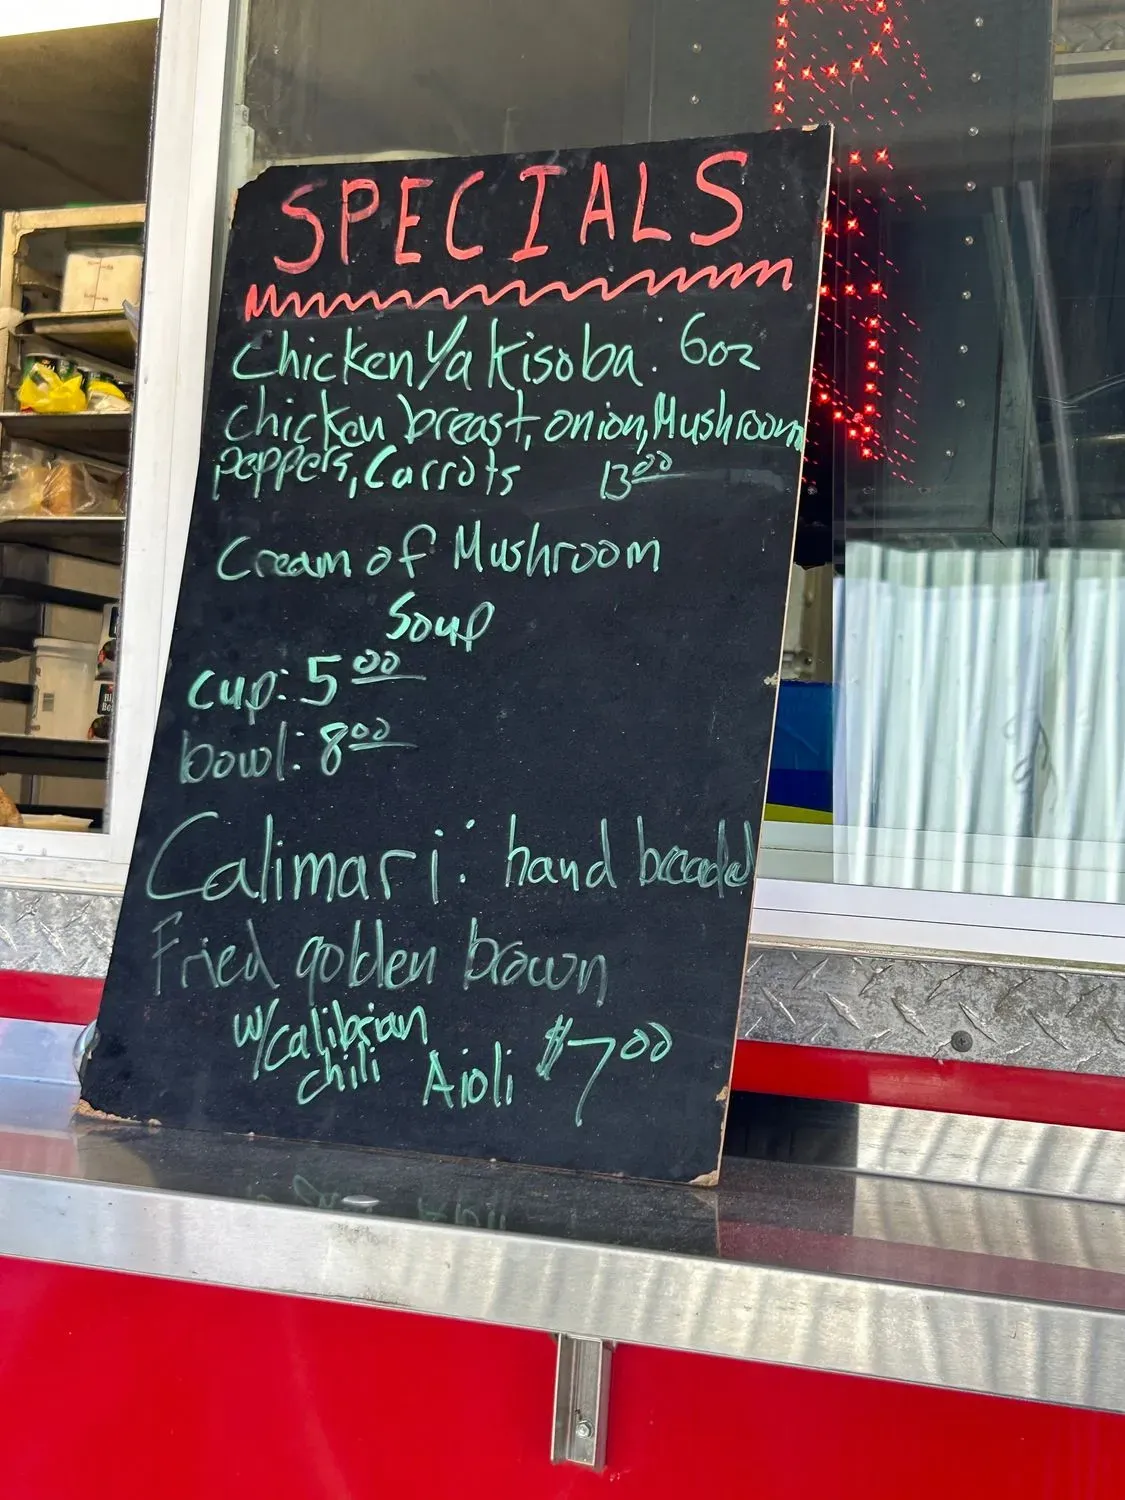 SPECIALS
Chicken Yakisoba: 6oz
chicken breast, onion, Mushroom
peppers, Carrots 13.00
Cream of Mushroom
Soup
cup: 5.00
bowl: 8.00
Calimari: hand breaded
Fried golden brown
w/calibrian
chili Aioli $7.00